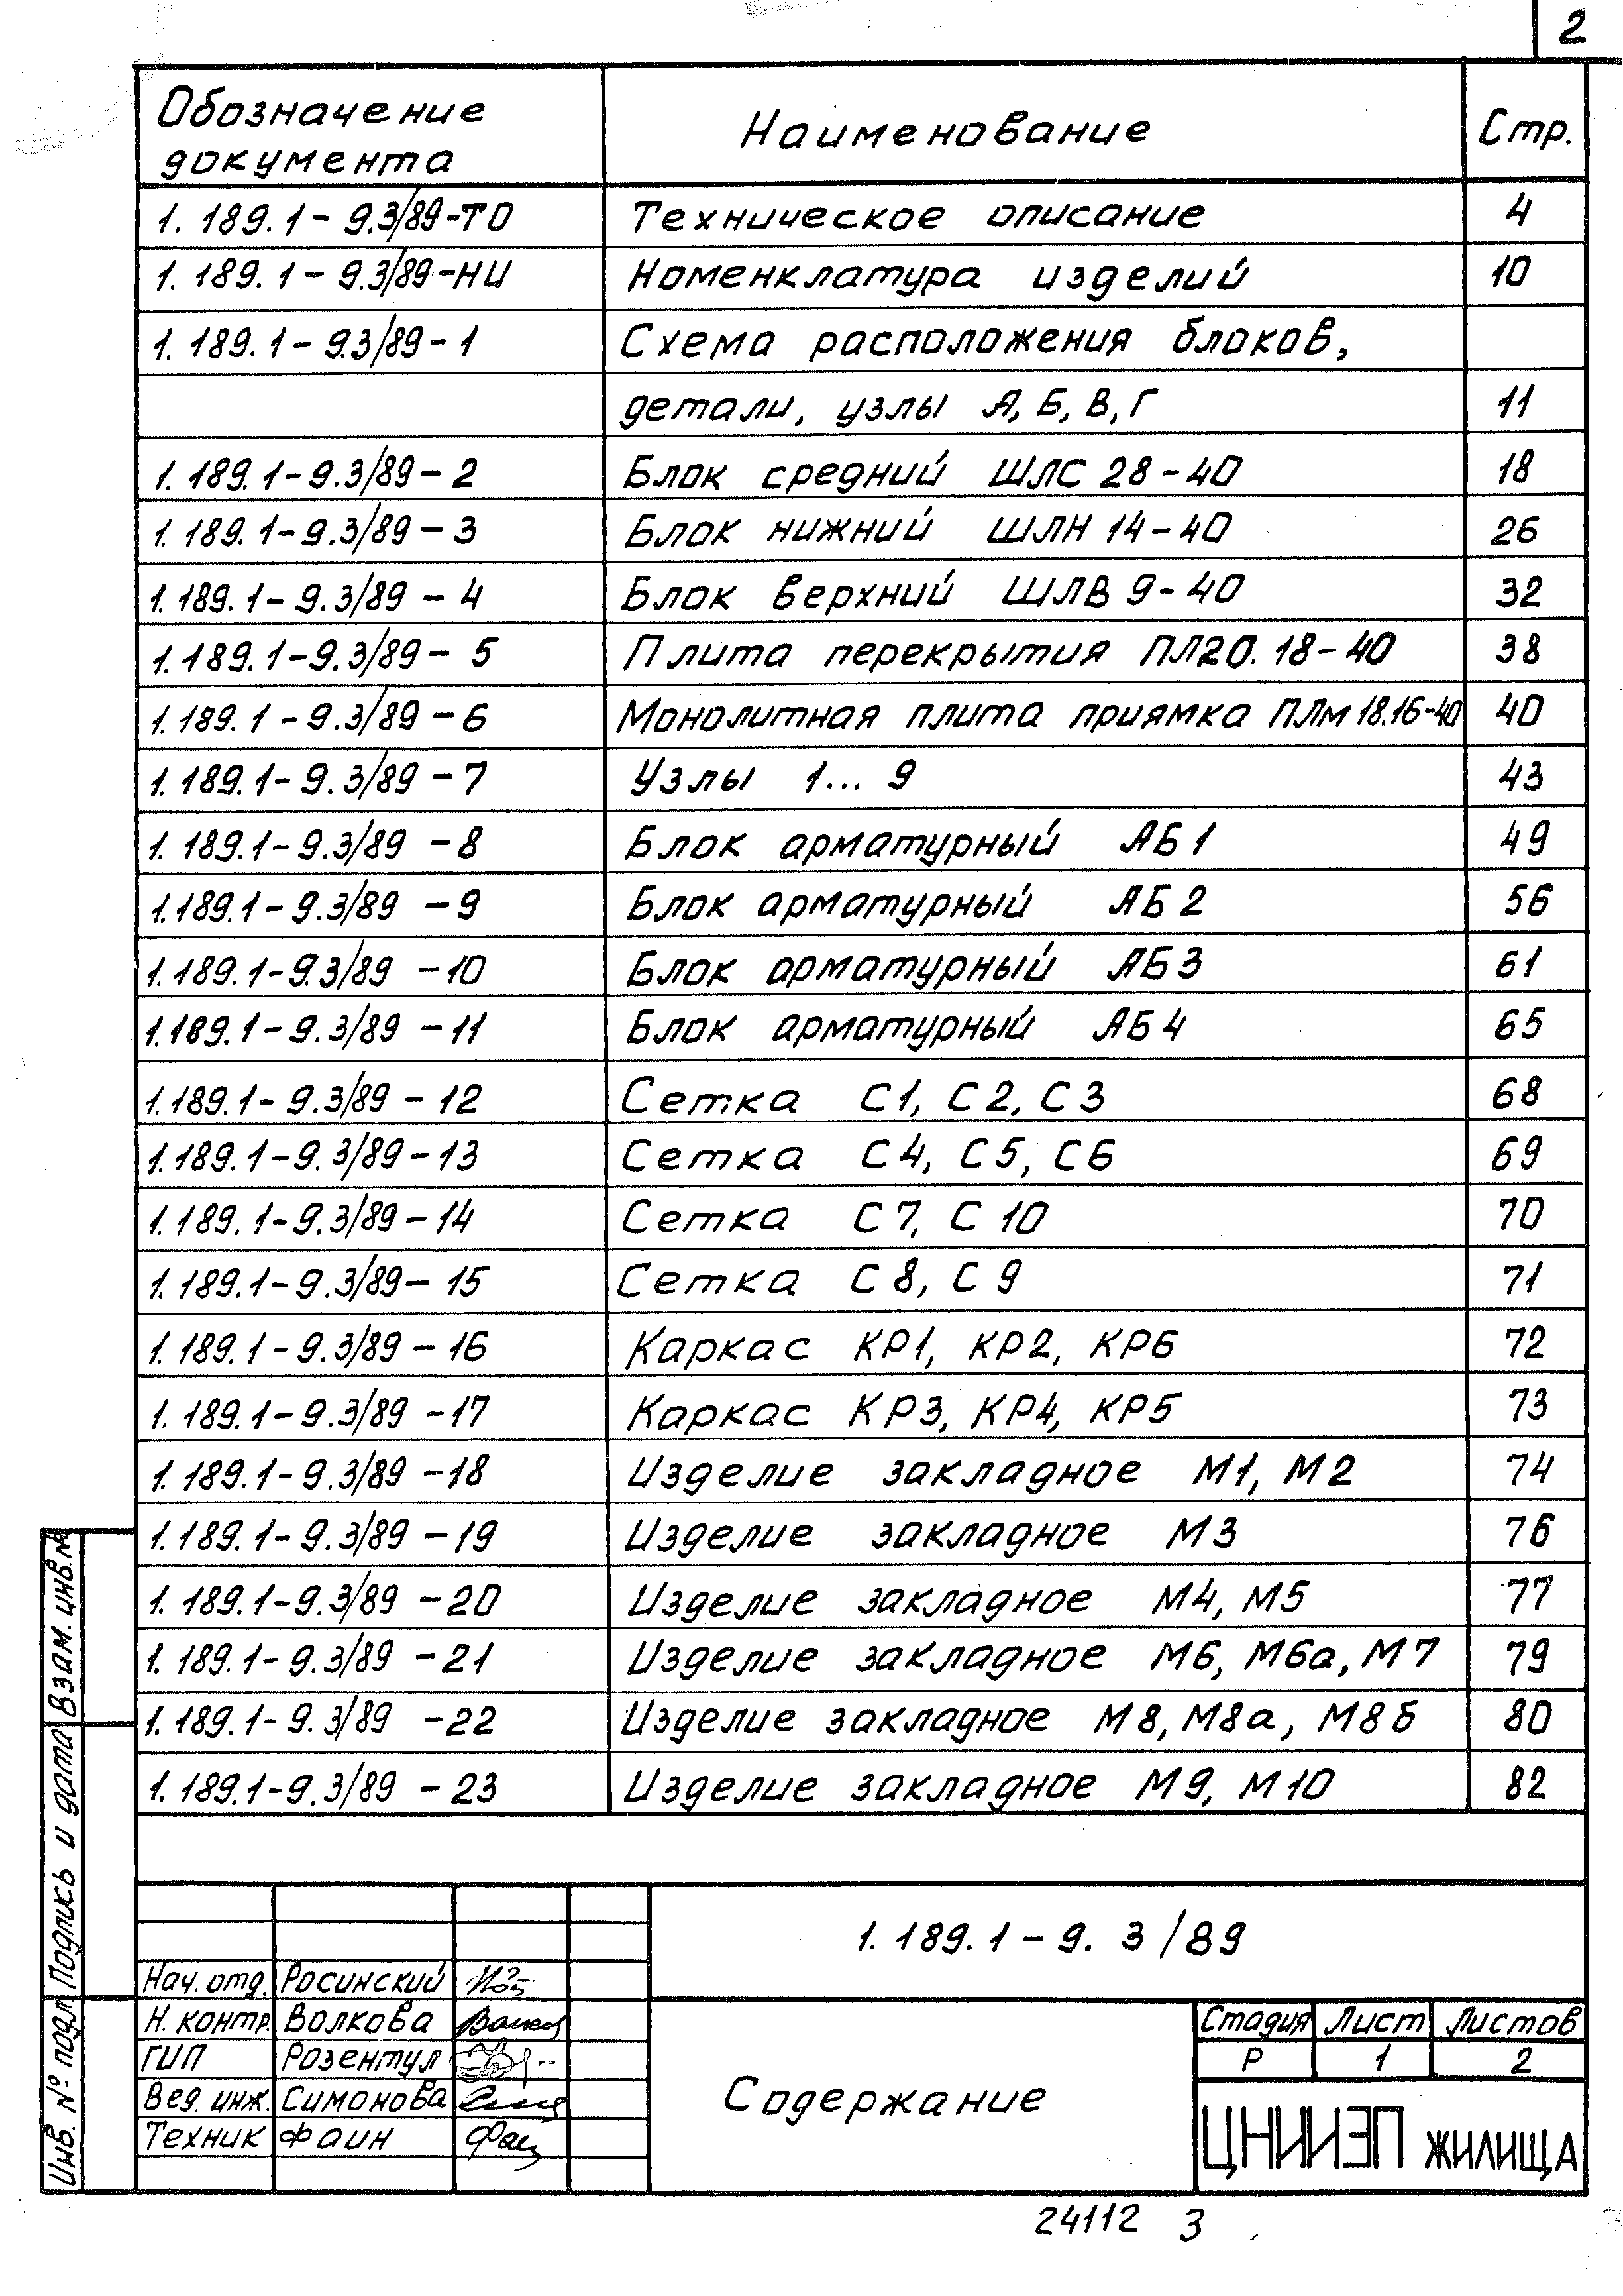 2
Обозначение документа Наименование Стр.
1.189.1-9.3/89-ТО Техническое описание 4
1.189.1-9.3/89-НИ Номенклатура изделий 10
1.189.1-9.3/89-1 Схема расположения блоков,
детали, узлы А, Б, В, Г 11
1.189.1-9.3/89-2 Блок средний ШЛС 28-40 18
1.189.1-9.3/89-3 Блок нижний ШЛН 14-40 26
1.189.1-9.3/89-4 Блок верхний ШЛВ 9-40 32
1.189.1-9.3/89-5 Плита перекрытия ПЛ20.18-40 38
1.189.1-9.3/89-6 Монолитная плита приямка ПЛм 18.16-40 40
1.189.1-9.3/89-7 Узлы 1...9 43
1.189.1-9.3/89-8 Блок арматурный АБ1 49
1.189.1-9.3/89-9 Блок арматурный АБ2 56
1.189.1-9.3/89-10 Блок арматурный АБ3 61
1.189.1-9.3/89-11 Блок арматурный АБ4 65
1.189.1-9.3/89-12 Сетка С1, С2, С3 68
1.189.1-9.3/89-13 Сетка С4, С5, С6 69
1.189.1-9.3/89-14 Сетка С7, С10 70
1.189.1-9.3/89-15 Сетка С8, С9 71
1.189.1-9.3/89-16 Каркас КР1, КР2, КР6 72
1.189.1-9.3/89-17 Каркас КР3, КР4, КР5 73
1.189.1-9.3/89-18 Изделие закладное М1, М2 74
1.189.1-9.3/89-19 Изделие закладное М3 76
1.189.1-9.3/89-20 Изделие закладное М4, М5 77
1.189.1-9.3/89-21 Изделие закладное М6, М6а, М7 79
1.189.1-9.3/89-22 Изделие закладное М8, М8а, М8б 80
1.189.1-9.3/89-23 Изделие закладное М9, М10 82
Взам. инв.№
Подпись и дата
Инв. № подл
1.189.1-9.3/89
Нач. отд. Росинский
Н. контр. Волкова
ГИП Розентул
Вед. инж. Симонова
Техник Фаин
Содержание
Стадия Лист Листов
Р 1 2
ЦНИИЭП жилища
24112 3